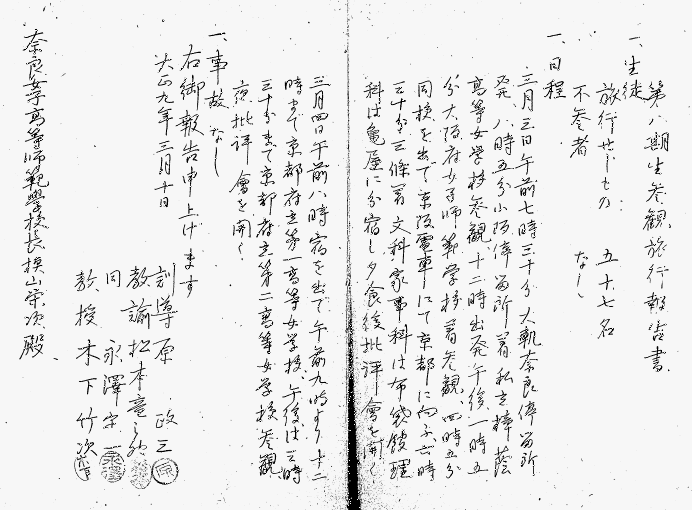 第八期生参観旅行報告書
一、生徒
旅行セシモノ 五十七名
不参者 なし
一、日程
三月三日午前七時三十分大軌奈良停留所
発、八時五分小阪停留所着私立樟蔭
高等女学校参観、十二時出発午後一時五
分大阪府女子師範学校着参観、四時五分
同校を出で京阪電車にて京都に向ふ六時
三十分三條着文科家事科は布袋館理
科は亀屋に分宿し夕食後批評會を開く
三月四日午前八時宿を出で午前九時より十二
時まで京都府立第一高等女学校、午後は三時
三十分まで京都府立第二高等女学校参観
夜批評會を開く
一、事故 なし
右御報告申上げます
大正九年三月十日
訓導 原 政三
教諭 松本
同 永澤
教授 木下竹次
奈良女子高等師範學校長槇山栄次殿